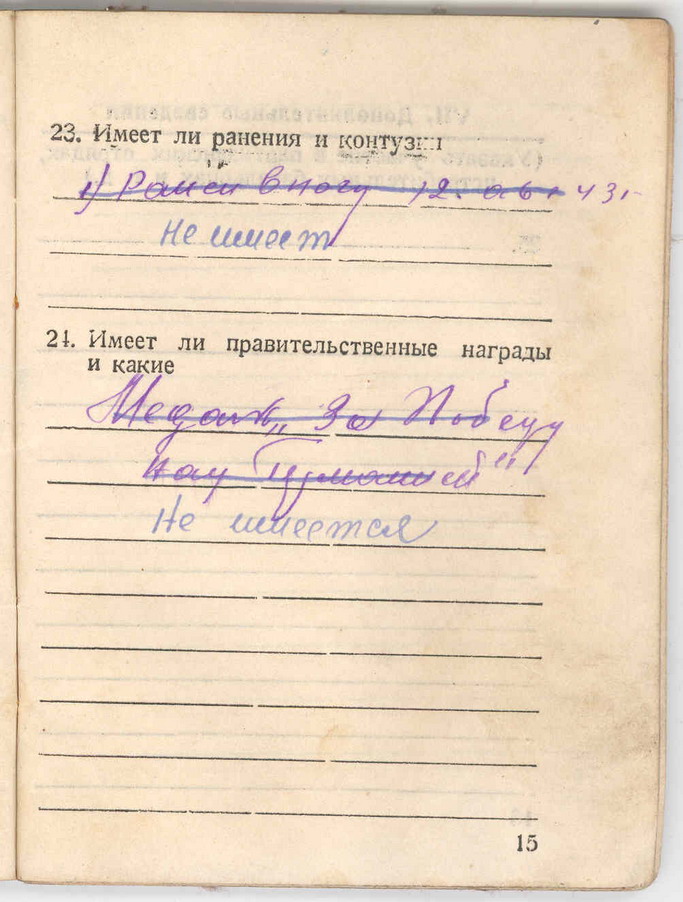 23. Имеет ли ранения и контузии
1) Ранен в ногу 12. авг 43г
Не имеет
24. Имеет ли правительственные награды
и какие
Медаль „За Победу
над Германией"
Не имеется
15